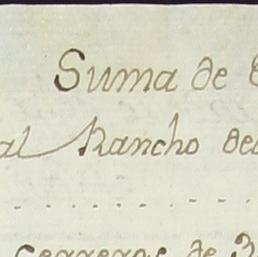 Suma de
al Rancho de
cerreros de 3